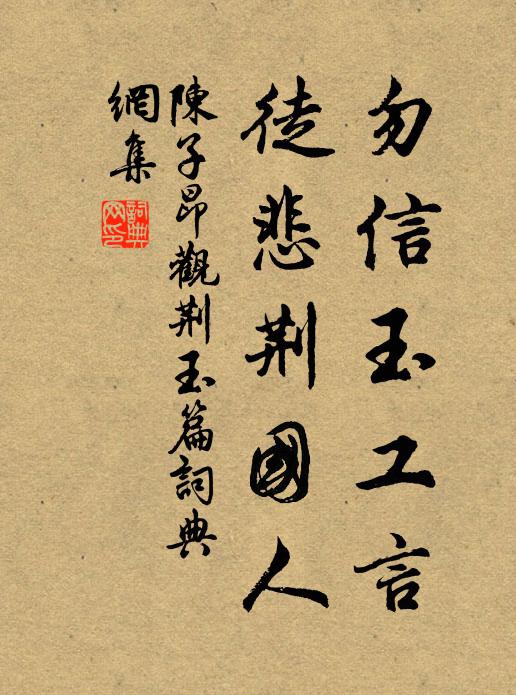 勿信玉工言
徒悲荆國人
陳子昂觀荆玉篇詞典
網集
詞典
网印